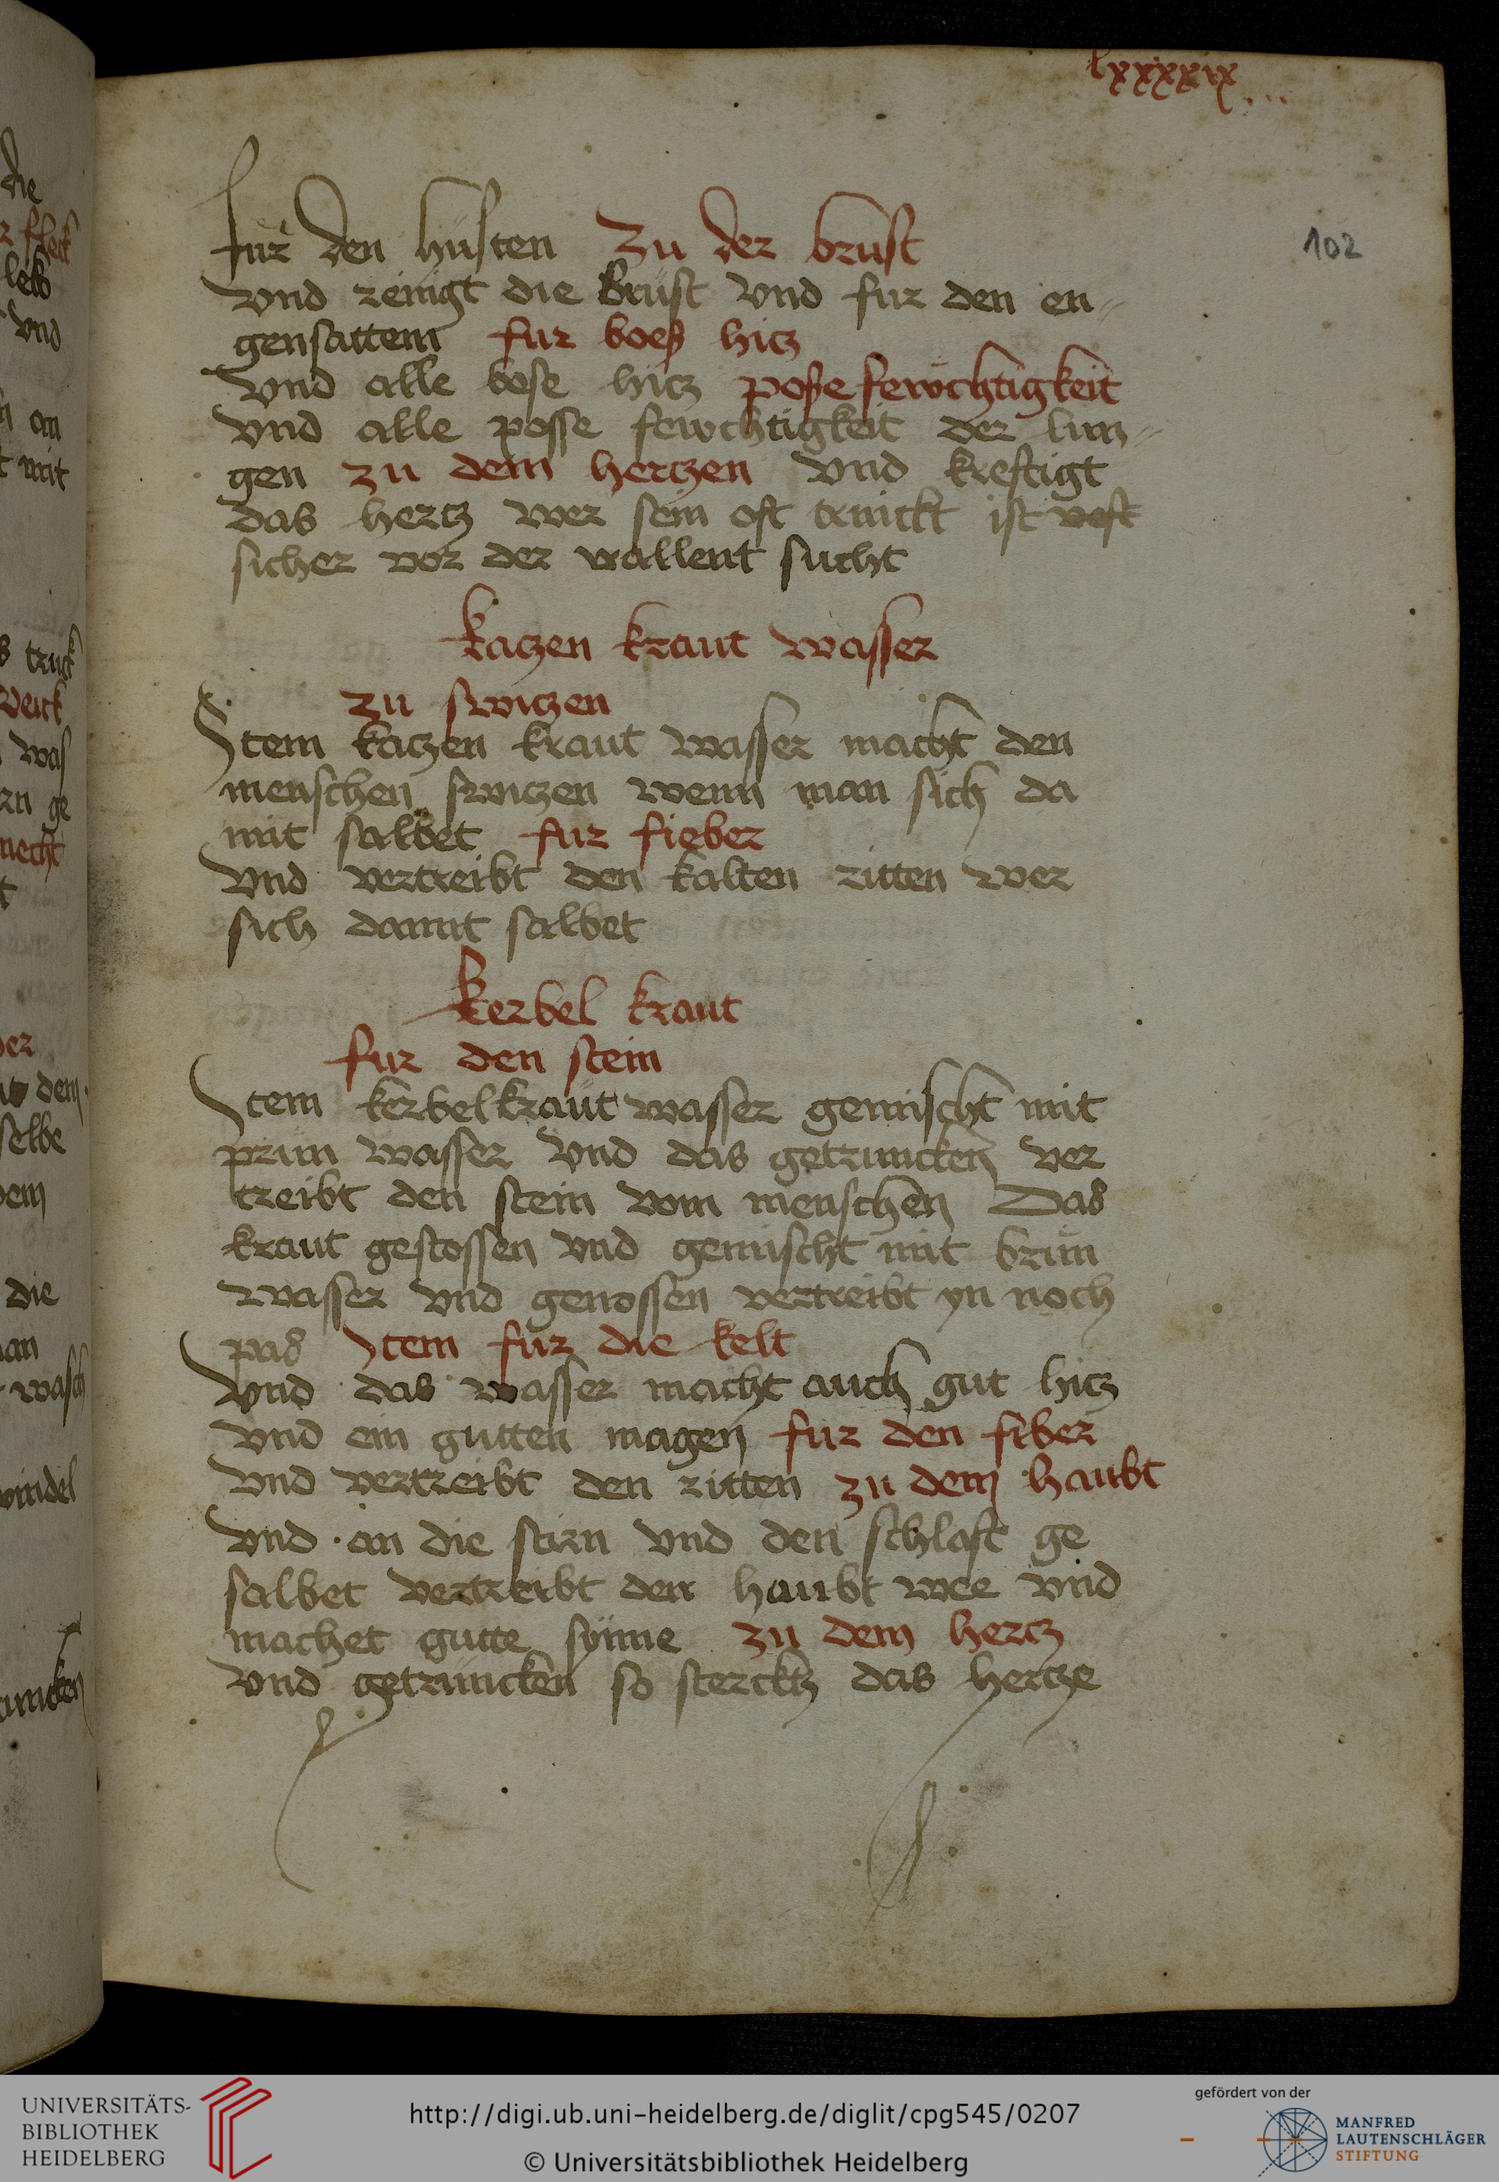 lxxxxix
102
fur den husten zu der brust
vnd reinigt die brust vnd fur den en-
gensattem fur boeß hitz
vnd alle bose hitz poße fewchtigkeit
vnd alle posse fewchtigkeit der lun-
gen zu dem hertzen vnd kreftigt
das hertz wer sein oft trinckt ist vast
sicher vor der vallent sucht
katzen kraut wasser
zu switzen
Item katzen kraut wasser macht den
menschen switzen wenn man sich da
mit salbet fur fieber
vnd vertreibt den kalten ritten wer
sich damit salbet
kerbel kraut
fur den stein
Item kerbelkraut wasser gemischt mit
prun wasser vnd das getruncken ver
treibt den stein vom menschen Das
kraut gestossen vnd gemischt mit brun
wasser vnd genossen vertreibt yn noch
pas Item fur die kelt
vnd das wasser macht auch gut hitz
vnd ein gutten magen fur den fiber
vnd vertreibt den ritten zu dem haubt
vnd an die stirn vnd den schlaft ge
salbet vertreibt den haubt wee vnd
machet gutte synne zu dem hertz
vnd getruncken so sterckt das hertze
UNIVERSITÄTS-
BIBLIOTHEK
HEIDELBERG
http://digi.ub.uni-heidelberg.de/diglit/cpg545/0207
© Universitätsbibliothek Heidelberg
gefördert von der
MANFRED
LAUTENSCHLÄGER
STIFTUNG